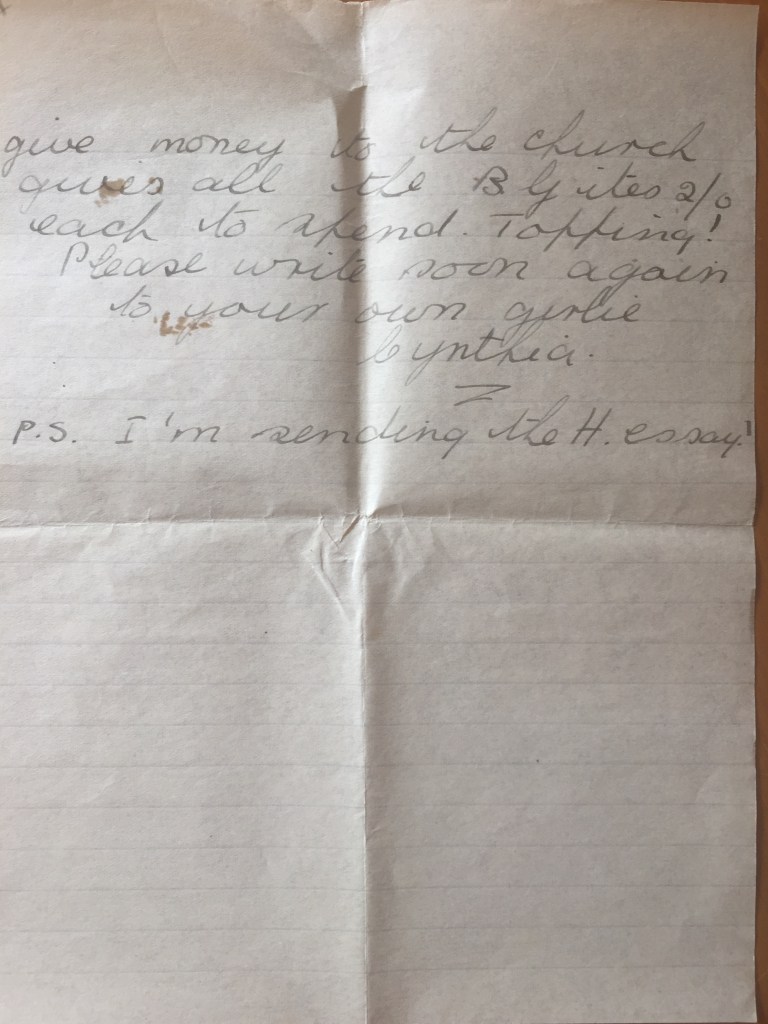 give money to the church
gives all the B G ites 2/0
each to spend. Topping!
Please write soon again
to your own girlie
Cynthia.
P.S. I'm sending the H. essay!